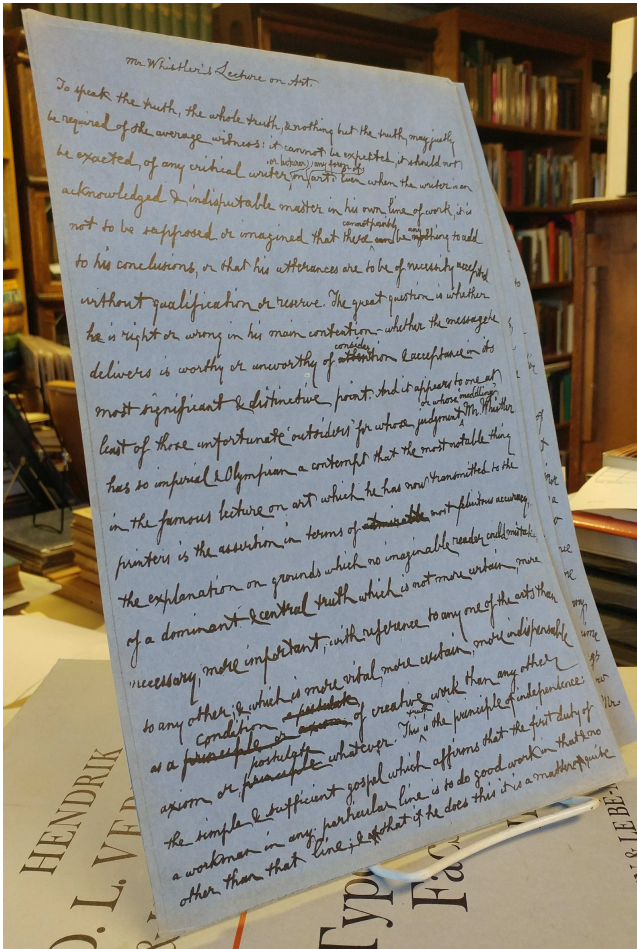 Mr. Whistler's Lecture on Art.
To speak the truth, the whole truth, & nothing but the truth, may justly
be required of the average witness: it cannot be expected, it should not
be exacted, of any critical writer on art. Even when the writer is an
acknowledged & indisputable master in his own line of work, it is
cannot possibly any
not to be supposed or imagined that there can be nothing to add
to his conclusions, or that his utterances are to be of necessity accepted
without qualification or reserve. The great question is whether
he is right or wrong in his main contention – whether the message he
consider
delivers is worthy or unworthy of attention & acceptance in its
most significant & distinctive point. And it appears to one at
or whose 'meddling'
least of those unfortunate 'outsiders' for whose judgment Mr. Whistler
has so imperial & Olympian a contempt that the most notable thing
in the famous lecture on art which he has now transmitted to the
printers is the assertion in terms of admirable most felicitous accuracy,
the explanation on grounds which no imaginable reader could mistake,
of a dominant & central truth which is not more certain, more
necessary, more important, with reference to any one of the arts than
to any other; & which is more vital, more certain, more indispensable
condition postulate
as a principle or axiom of creative work than any other
postulate
axiom or principle whatever. This is the principle of independence:
the simple & sufficient gospel which affirms that the first duty of
a workman in any particular line is to do good work in that & no
other than that line; & that if he does this it is a matter of quite
HENDRIK
D. L.
Typ
Fac